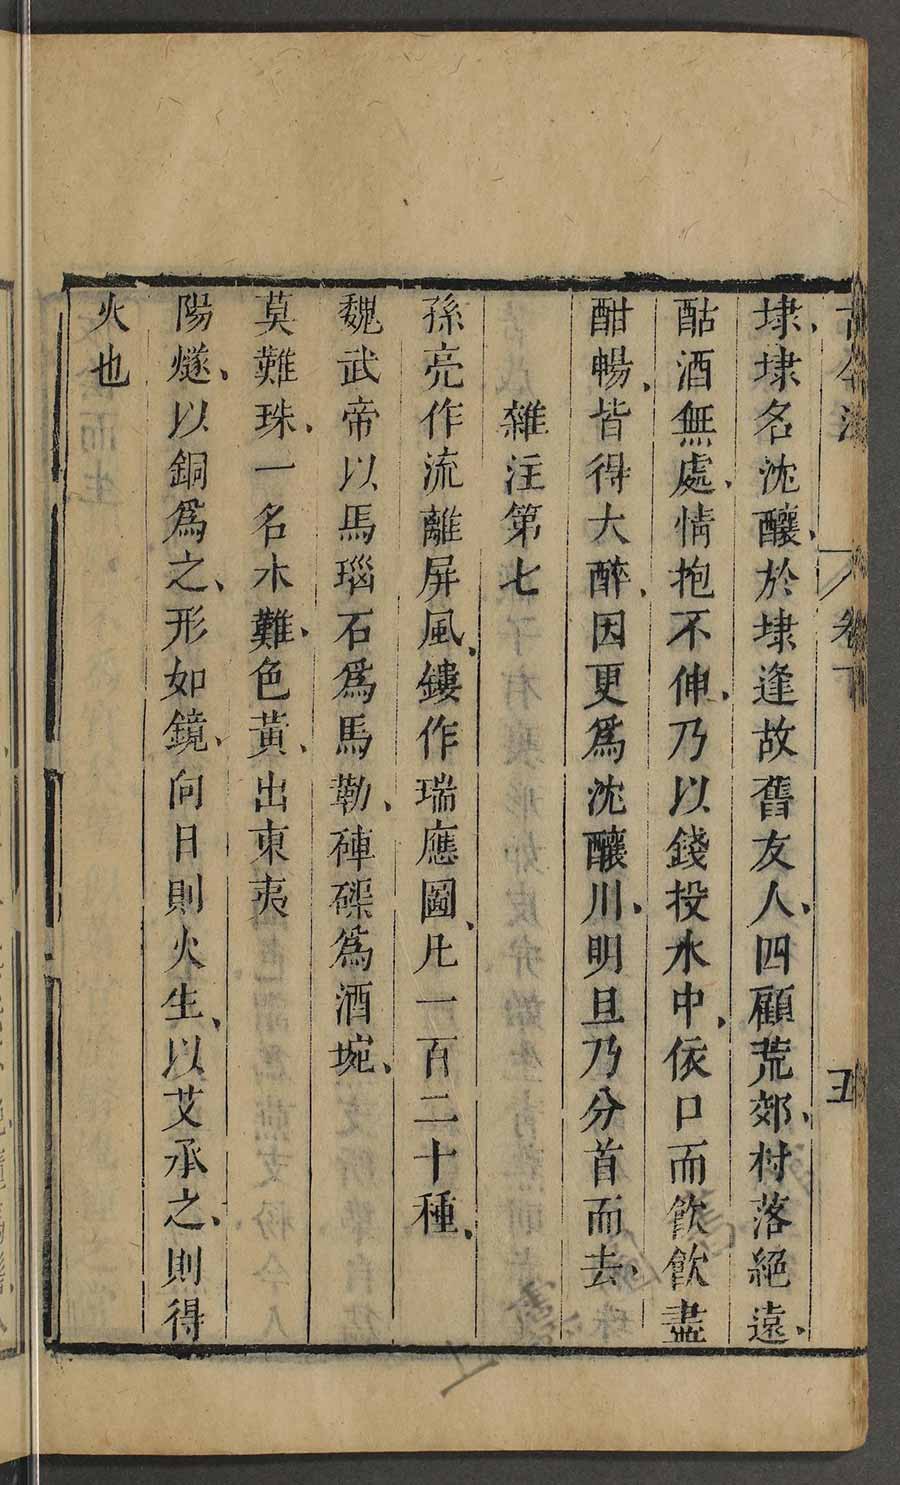 古今注 卷下 五
埭、埭名沈釀、於埭逢故舊友人、四顧荒郊、村落絕遠、
酤酒無處、情抱不伸、乃以錢投水中、依口而飮飮盡
酣暢、皆得大醉、因更爲沈釀川、明旦乃分首而去、
雜注第七
孫亮作流離屏風、鏤作瑞應圖、凡一百二十種、
魏武帝以馬瑙石爲馬勒、硨磲爲酒埦、
莫難珠、一名木難、色黃、出東夷
陽燧、以銅爲之、形如鏡、向日則火生、以艾承之、則得
火也